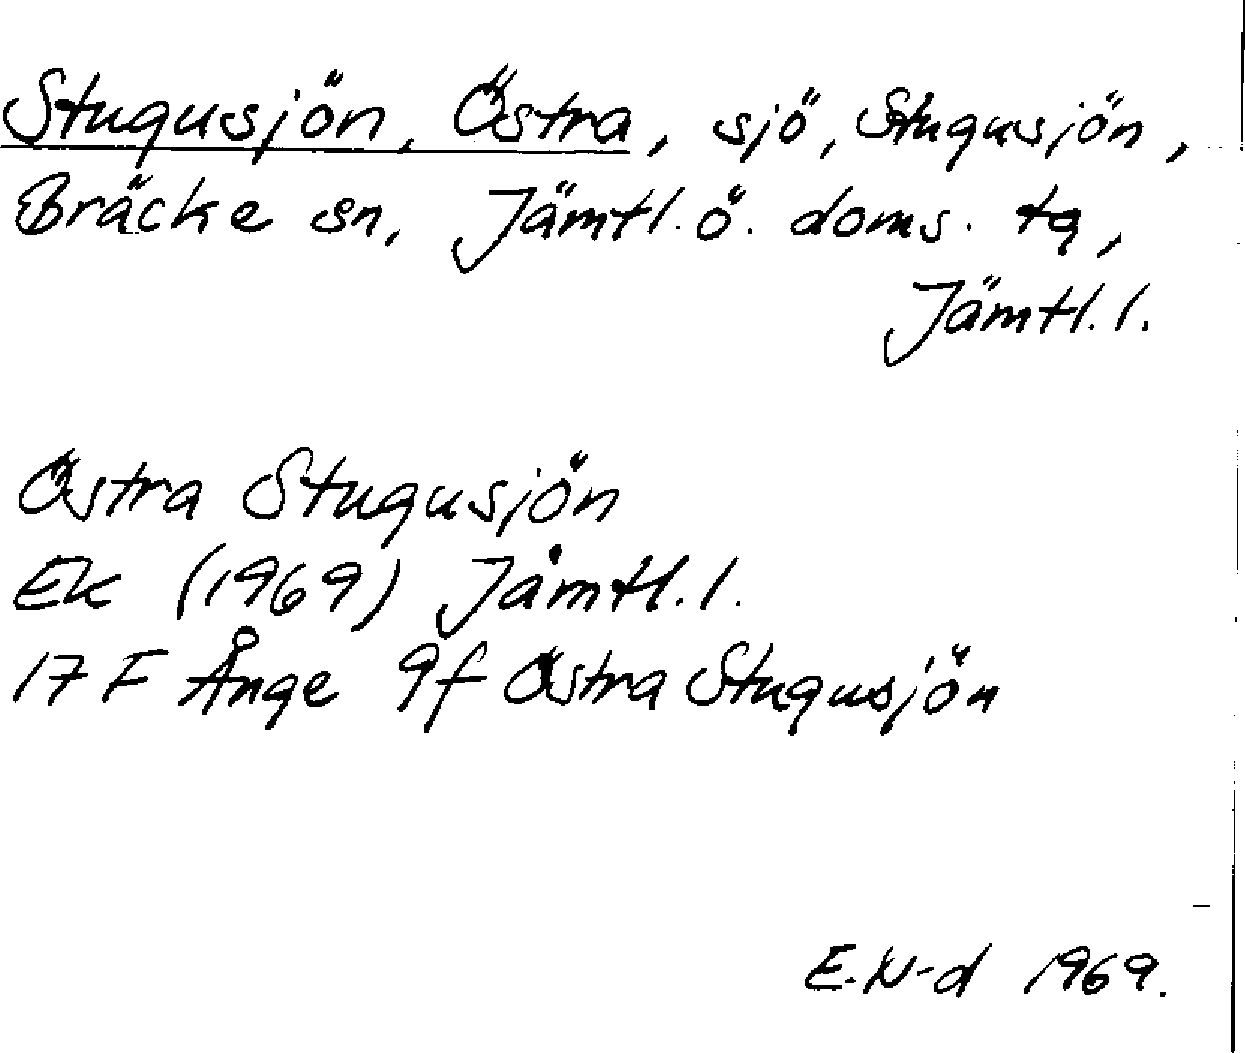 Stugusjön, Östra, sjö, Stugusjön,
Bräcke sn, Jämtl. ö. doms. tg,
Jämtl. l.
Östra Stugusjön
Ek (1969) Jämtl. l.
17 F Ånge 9f Östra Stugusjön
E. N-d 1969.